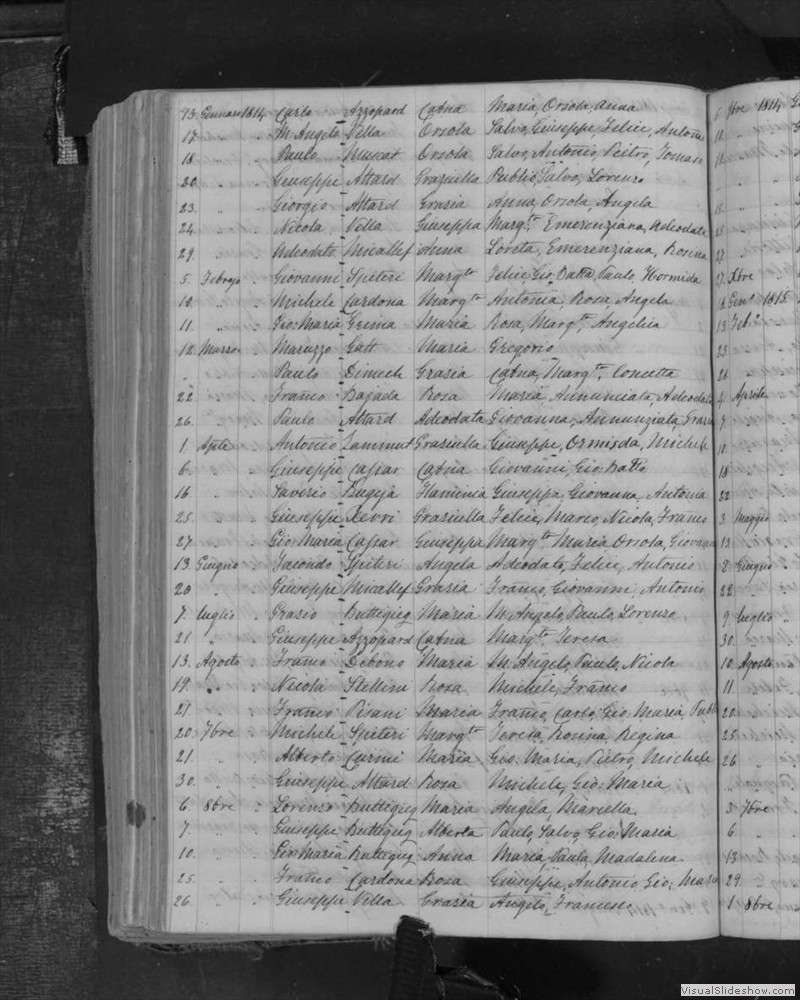 13. Gennaro 1814 Carlo Azzopard Catna Maria, Orsola, Anna
17. " " M. Angelo Vella Orsola Salvo, Giuseppe, Felice, Antonio
18. " " Paulo Muscat Orsola Salvo, Antonio, Pietro, Tomaso
20. " " Giuseppe Attard Graziella Publio, Salvo, Lorenzo
23. " " Giorgio Attard Grazia Anna, Orsola, Angela
24. " " Nicola Vella Giuseppa Margta. Emerenziana, Adeodata
29. " " Adeodato Micallef Anna Loreta, Emerenziana, Rosina
5. Febrajo " Giovanni Spiteri Margta Felice, Gio. Batta, Paulo, Hormisda
10. " " Michele Cardona Margta Antonia, Rosa, Angela
11. " " Gio: Maria Grima Maria Rosa, Margta. Angelica
12. Marzo " Maruzzo Gatt Maria Gregorio
" " Paulo Dimech Grazia Catna, Margta. Concetta
22 " " Franco Bajada Rosa Maria, Annunciata, Adeodata
26. " " Paulo Attard Adeodata Giovanna, Annunziata, Grazia
1. Aple " Antonio Zammut Graziella Giuseppe, Ormisda, Michele
6. " " Giuseppe Cassar Catna Giovanni, Gio: Batta
16. " " Saverio Bugeja Flaminia Giuseppa, Giovanna, Antonia
25. " " Giuseppe Xerri Graziella Felice, Marco, Nicola, Franco
27. " " Gio: Maria Cassar Giuseppa Margta. Maria Orsola, Giovanna
13. Giugno " Facondo Spiteri Angela Adeodato, Felice, Antonio
20 " " Giuseppe Micallef Grazia Franco, Giovanni, Antonio
7. Luglio " Grazio Buttigieg Maria M. Angelo, Paulo, Lorenzo
21 " " Giuseppe Azzopard Catna Margta. Teresa
13. Agosto " Franco Debono Maria M. Angelo, Paulo, Nicola
19. " " Nicola Stellini Rosa Michele, Franco
21. " " Franco Pisani Maria Franco, Carlo, Gio. Maria, Publ
20. 7bre " Michele Spiteri Margta Teresa, Rosina, Regina
21. " " Alberto Curmi Maria Gio: Maria, Pietro, Michele
30. " " Giuseppe Attard Rosa Michele, Gio: Maria
6. 8bre " Lorenzo Buttigieg Maria Angela, Mariella
7. " " Giuseppe Buttigieg Alberta Paulo, Salvo, Gio: Maria
10. " " Gio: Maria Buttigieg Anna Maria, Paula, Madalena
25. " " Franco Cardona Rosa Giuseppe, Antonio, Gio: Maria
26. " " Giuseppe Vella Grazia Angelo, Francesco
9bre 1814
10.
27. Xbre
18. Genro 1815
13 Febro
23 "
28 "
4 Aprile
7 "
10 "
18 "
22 "
3 Maggio
13 "
2 Giugno
22 "
9. Luglio
30.
10. Agosto
11. "
20. "
25 "
26 "
3 7bre
6 "
13 "
29. "
1 8bre
VisualSlideshow.com